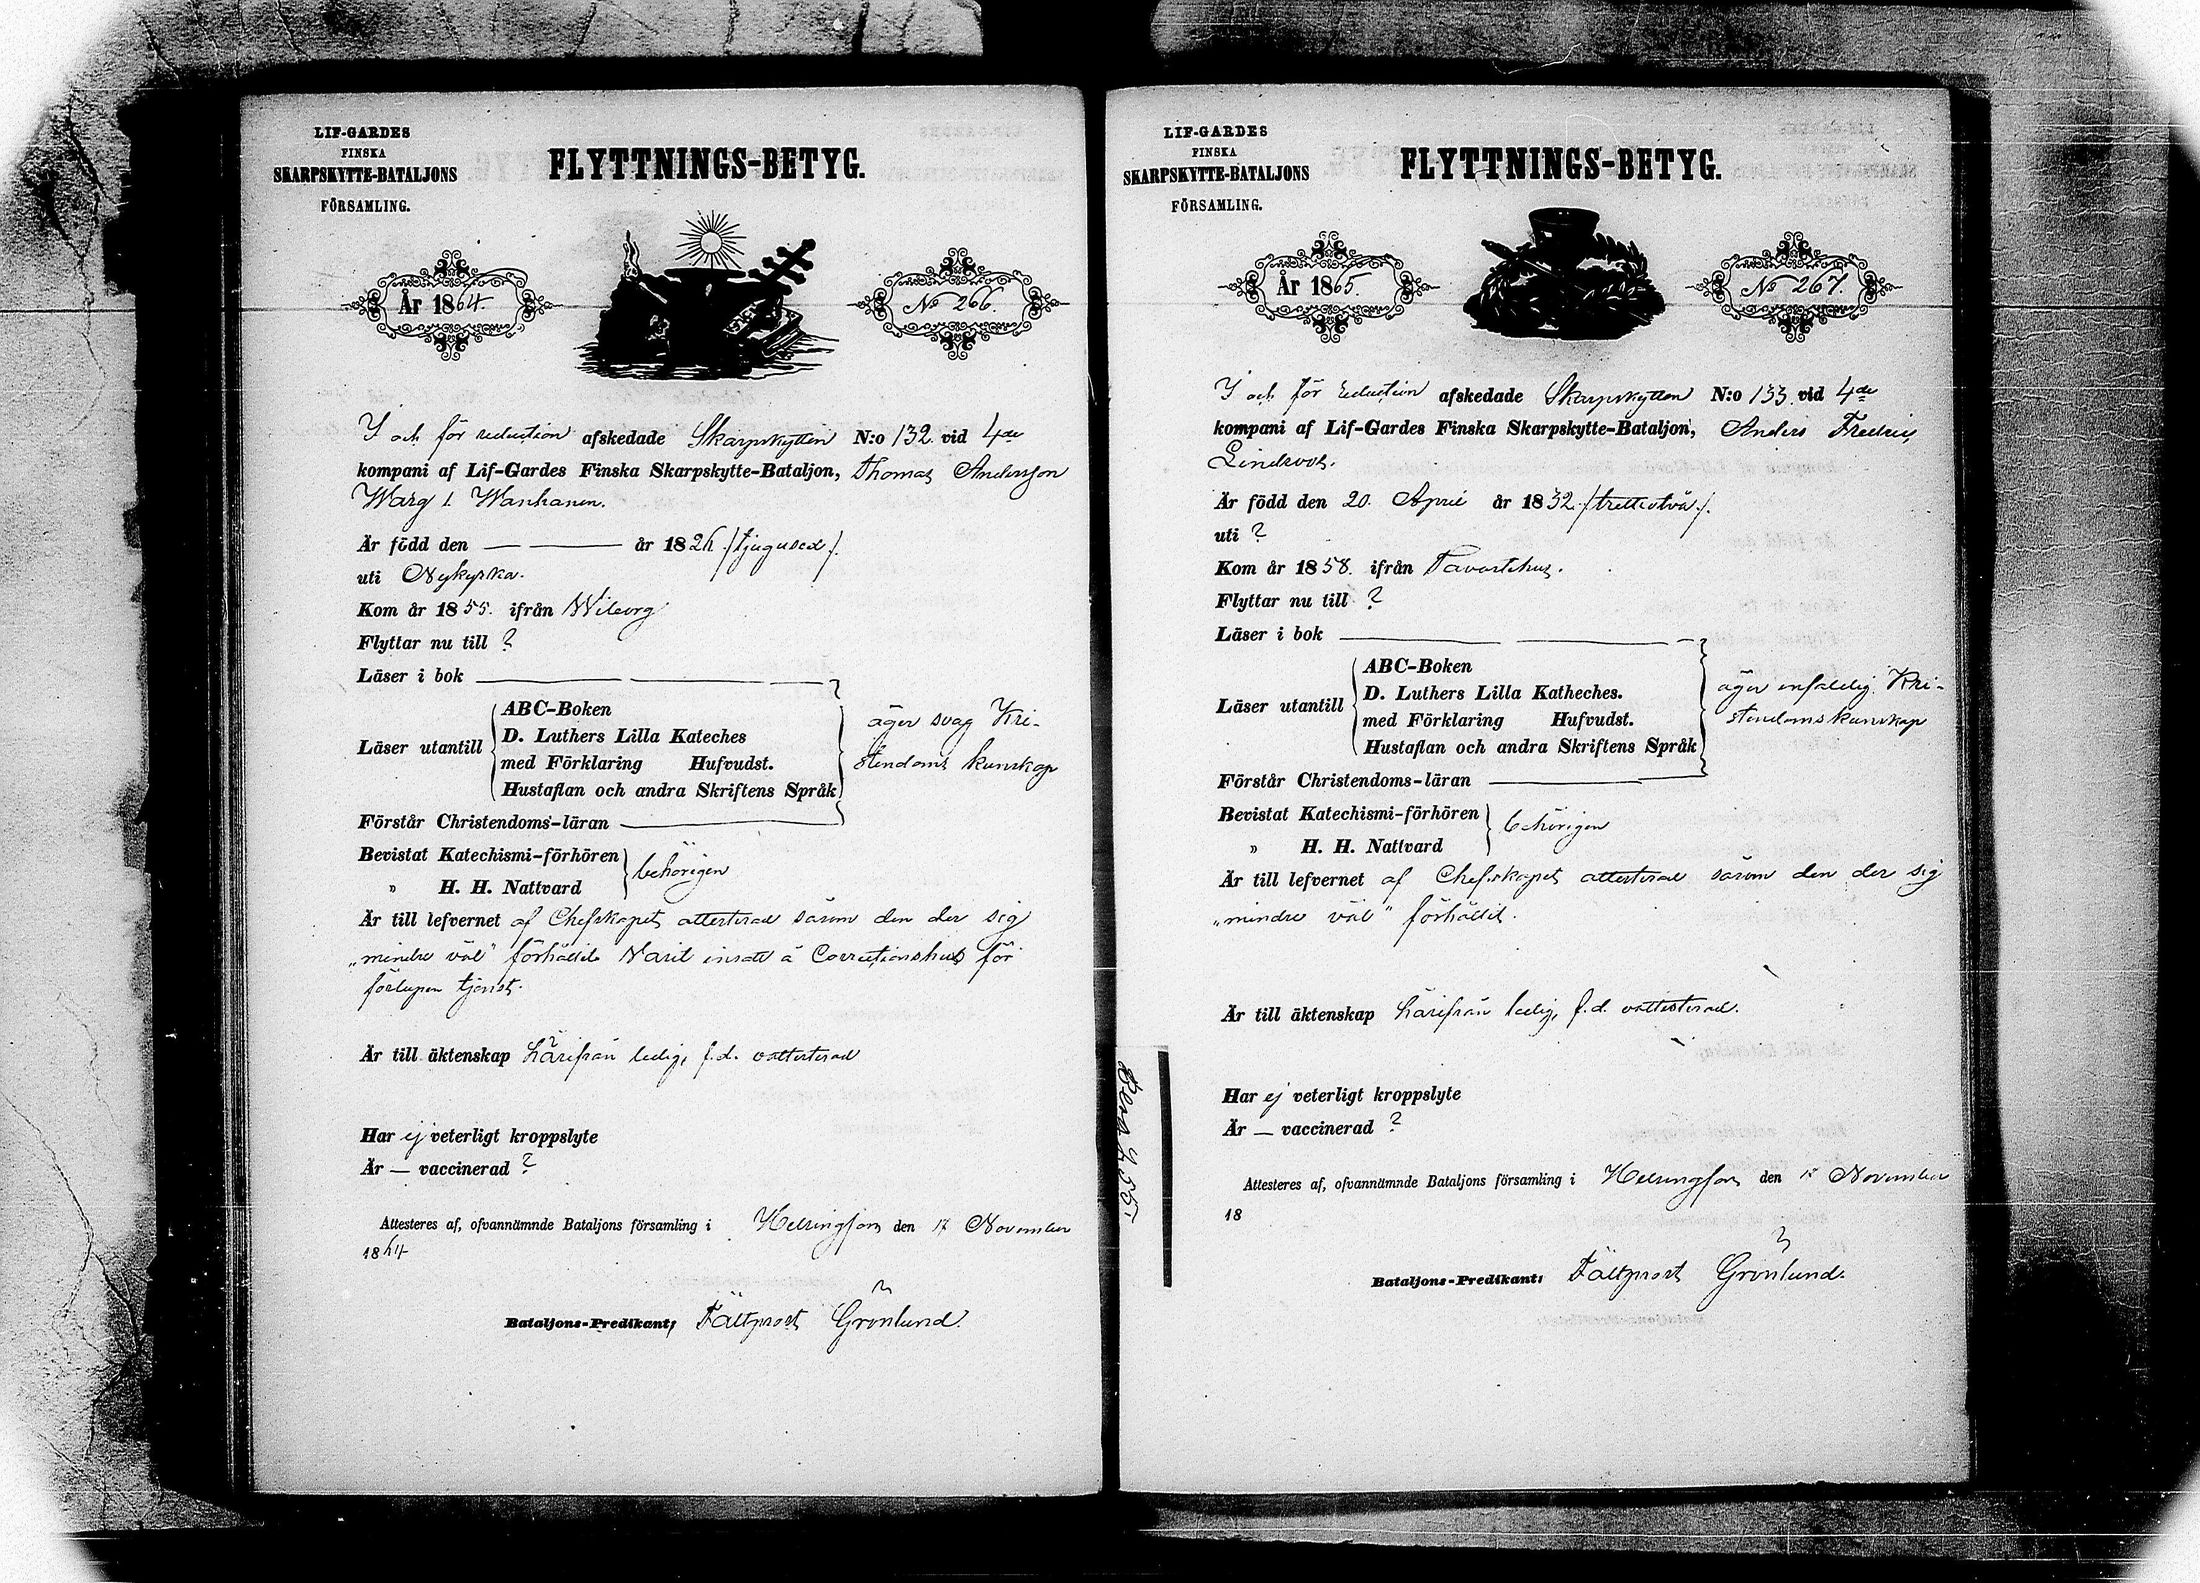 LIF-GARDES
FINSKA
SKARPSKYTTE-BATALJONS
FÖRSAMLING.
FLYTTNINGS-BETYG.
År 1864.
No 266.
I och för reduction afskedade Skarpskytten N:o 132 vid 4de
kompani af Lif-Gardes Finska Skarpskytte-Bataljon, Thomas Andersson
Warg l. Wanhanen.
Är född den — — år 1826 /tjugusex/.
uti Nykyrka.
Kom år 1855. ifrån Wiborg
Flyttar nu till ?
Läser i bok
Läser utantill
ABC-Boken
D. Luthers Lilla Kateches
med Förklaring Hufvudst.
Hustaflan och andra Skriftens Språk
äger svag Kri-
stendoms kunskap
Förstår Christendoms-läran
Bevistat Katechismi-förhören
" H. H. Nattvard
behörigen
Är till lefvernet af Chefskapet attesterad såsom den der sig
„mindre väl" förhållit. Varit insatt å Correctionshus för
förlupen tjenst.
Är till äktenskap härifrån ledig, f.d. oattesterad
Har ej veterligt kroppslyte
Är — vaccinerad ?
Attesteres af, ofvannämnde Bataljons församling i Helsingfors den 17 November
1864
Bataljons-Predikant: Fältprost Grönlund.
LIF-GARDES
FINSKA
SKARPSKYTTE-BATALJONS
FÖRSAMLING.
FLYTTNINGS-BETYG.
År 1865.
No 267.
I och för reduction afskedade Skarpskytten N:o 133 vid 4de
kompani af Lif-Gardes Finska Skarpskytte-Bataljon, Anders Fredric
Lindroos.
Är född den 20. April år 1832 /trettiotvå/.
uti ?
Kom år 1858. ifrån Tavastehus.
Flyttar nu till ?
Läser i bok
Läser utantill
ABC-Boken
D. Luthers Lilla Katheches.
med Förklaring Hufvudst.
Hustaflan och andra Skriftens Språk
äger enfaldig Kri-
stendomskunskap
Förstår Christendoms-läran
Bevistat Katechismi-förhören
" H. H. Nattvard
behörigen
Är till lefvernet af Chefskapet attesterad såsom den der sig
„mindre väl" förhållit.
Är till äktenskap härifrån ledig, f.d. oattesterad.
Har ej veterligt kroppslyte
Är — vaccinerad ?
Attesteres af, ofvannämnde Bataljons församling i Helsingfors den November
18
Bataljons-Predikant: Fältprost Grönlund.